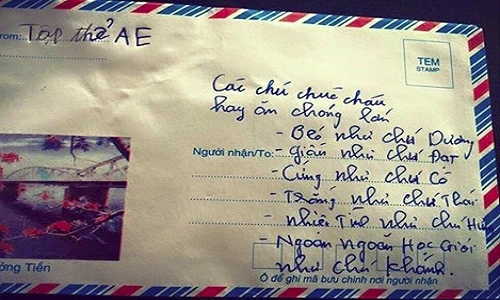 From: Tập thể AE
TEM
STAMP
Các chú chúc cháu
hay ăn chóng lớn
- Béo như chú Dương
Người nhận/To: - Giàu như chú Đạt
- Cứng như chú Có
- Trắng như chú Thái
- nhiệt Tình như chú
- Ngoan ngoãn Học Giỏi
như chú Khánh.
ờng Tiền
Ô để ghi mã bưu chính nơi người nhận